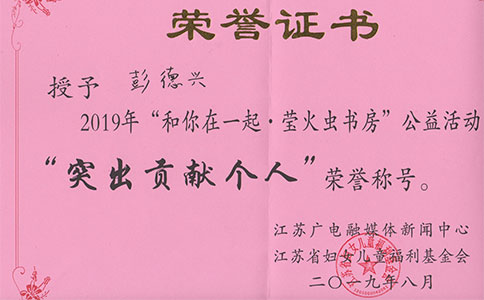 荣誉证书
授予 彭德兴
2019年“和你在一起·萤火虫书房”公益活动
“突出贡献个人”荣誉称号。
江苏广电融媒体新闻中心
江苏省妇女儿童福利基金会
二〇一九年八月